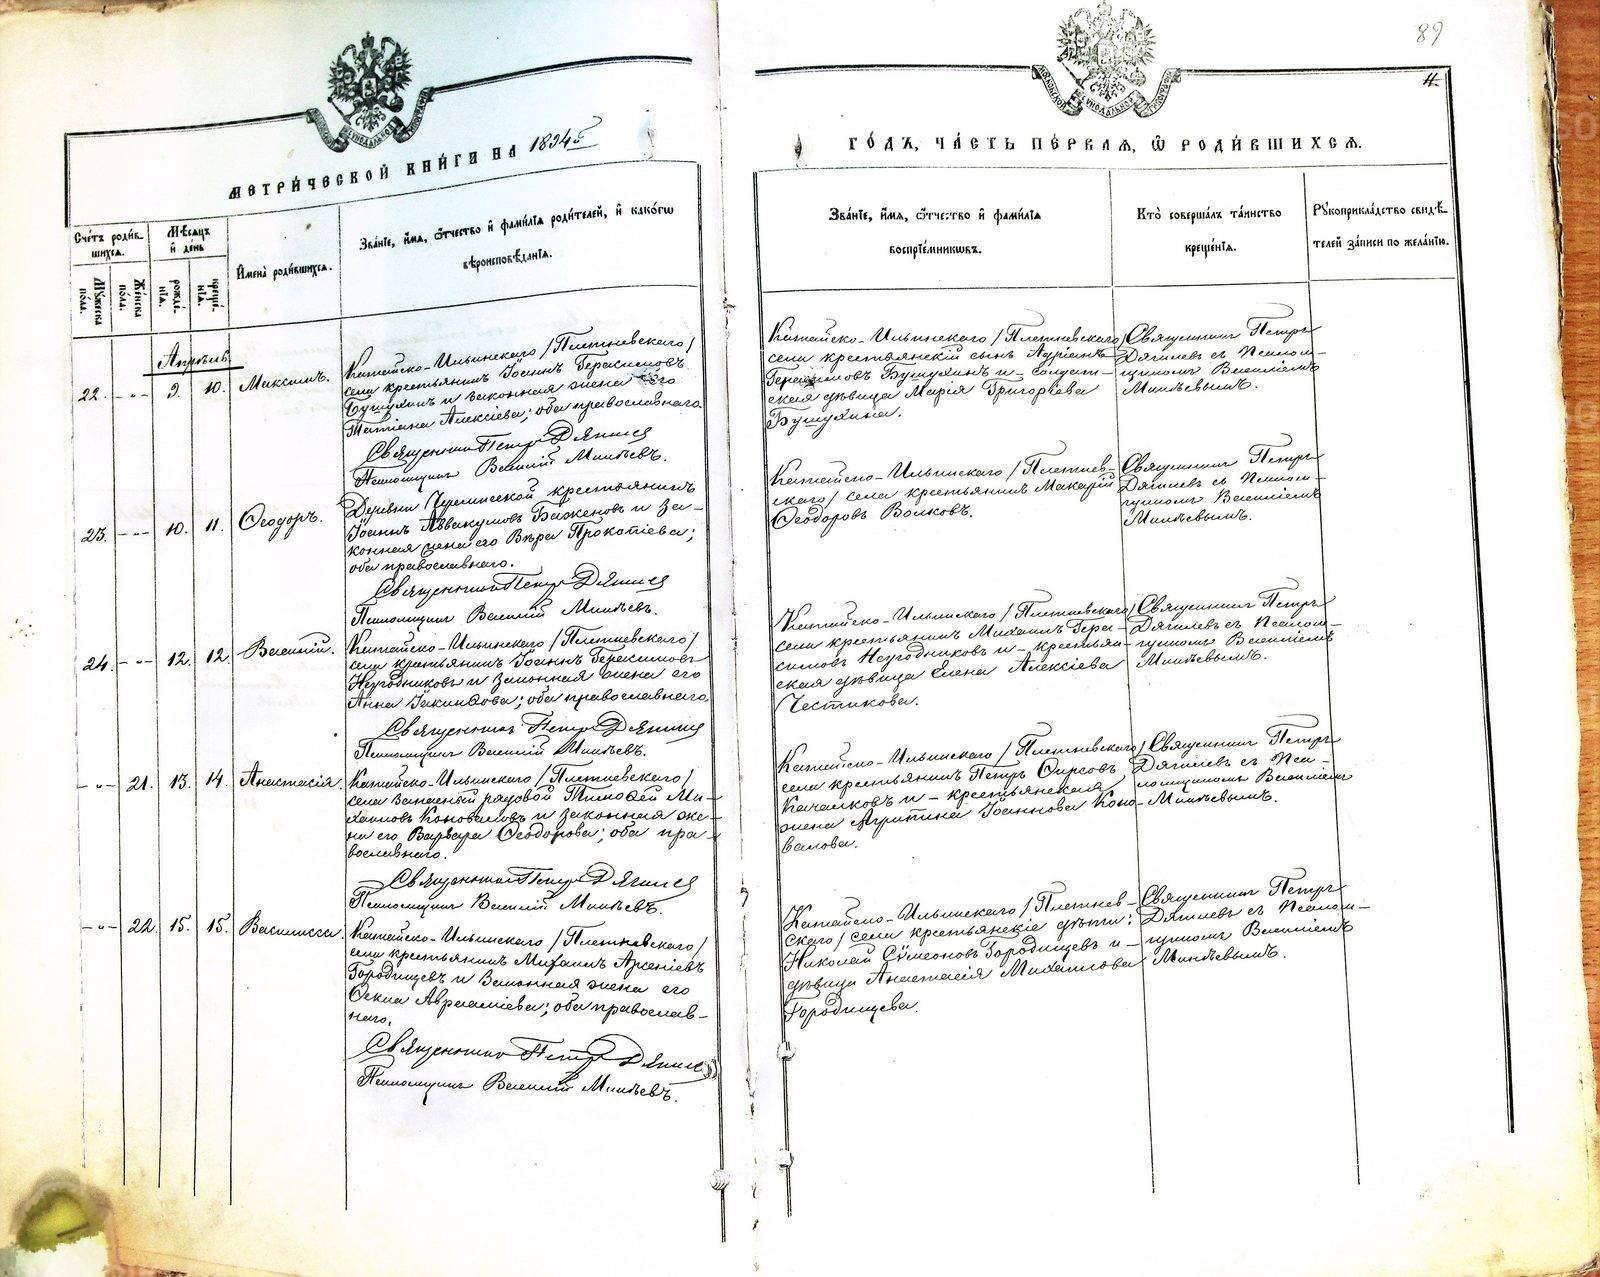 89
4.
МОСКОВСКОЙ СѴНОДАЛЬНОЙ ТИПОГРАФІИ
МЕТРИ́ЧЕСКОЙ КНИ́ГИ НА 1894й
ГО́ДЪ, ЧА́СТЬ ПЕ́РВАЯ, Ѽ РОДИ́ВШИХСЯ.
Сче́тъ роди́в-
шихся.
Мꙋжеска по́ла.
Же́нска по́ла.
Мѣ́сяцъ и҆ де́нь
рожде́-
нїѧ.
креще́-
нїѧ.
И҆мена̀ роди́вшихся.
Зва́нїе, и҆́мя, ѻ҆́тчество и҆ фами́лїя роди́телей, и҆ како́гѡ
вѣроисповѣ́данїя.
Зва́нїе, и҆́мя, ѻ҆́тчество и҆ фами́лїя
воспрїе́мникѡвъ.
Кто̀ соверша́лъ та́инство
креще́нїя.
Рꙋкоприкла́дство свидѣ́-
телей за́писи по жела́нїю.
Апрѣль
22. -"- 9. 10. Максимъ.
Катайско-Ильинскаго /Плетневскаго/
села крестьянинъ Іоаннъ Герасимовъ
Бушухинъ и законная жена его
Татіана Алексіева; оба православнаго.
Священникъ Петръ Дягилев
Псаломщикъ Василій Минѣевъ.
Катайско-Ильинскаго /Плетневскаго/
села крестьянскій сынъ Адріанъ
Герасимовъ Бушухинъ и - солдат-
ская дѣвица Марія Григоріева
Бушухина.
Священникъ Петръ
Дягилевъ съ псалом-
щикомъ Василіемъ
Минѣевымъ.
23. -"- 10. 11. Ѳеодоръ.
крестьянинъ
Іоаннъ Аввакумовъ Баженовъ и за-
конная жена его Вѣра Прокопіева;
оба православнаго.
Священникъ Петръ Дягилев
Псаломщикъ Василій Минѣевъ.
Катайско-Ильинскаго /Плетнев-
скаго/ села крестьянинъ Макарій
Ѳеодоровъ Волковъ.
Священникъ Петръ
Дягилевъ съ псалом-
щикомъ Василіемъ
Минѣевымъ.
24. -"- 12. 12. Василій.
Катайско-Ильинскаго /Плетневскаго/
села крестьянинъ Іоаннъ Герасимовъ
Неугодниковъ и законная жена его
Анна Іакинѳова; оба православнаго.
Священникъ Петръ Дягилев
Псаломщикъ Василій Минѣевъ.
Катайско-Ильинскаго /Плетневскаго/
села крестьянинъ Михаилъ Гера-
симовъ Неугодниковъ и - крестьян-
ская дѣвица Елена Алексіева
Честикова.
Священникъ Петръ
Дягилевъ съ псалом-
щикомъ Василіемъ
Минѣевымъ.
-"- 21. 13. 14. Анастасія.
Катайско-Ильинскаго /Плетневскаго/
села запасный рядовой Тимоѳей Ми-
хаиловъ Коноваловъ и законная же-
на его Варвара Ѳеодорова; оба пра-
вославнаго.
Священникъ Петръ Дягилев
Псаломщикъ Василій Минѣевъ.
Катайско-Ильинскаго /Плетневскаго/
села крестьянинъ Петръ Фирсовъ
Качалковъ и - крестьянская
жена Агриппина Іоаннова Коно-
валова.
Священникъ Петръ
Дягилевъ съ пса-
ломщикомъ Василіемъ
Минѣевымъ.
-"- 22. 15. 15. Василисса.
Катайско-Ильинскаго /Плетневскаго/
села крестьянинъ Михаилъ Арсеніевъ
Городищевъ и законная жена его
Ѳекла Авраамиева; оба православ-
наго.
Священникъ Петръ Дягилев
Псаломщикъ Василій Минѣевъ.
Катайско-Ильинскаго /Плетнев-
скаго/ села крестьянскіе дѣти:
Николай Сѵмеоновъ Городищевъ и -
дѣвица Анастасія Михаилова
Городищева.
Священникъ Петръ
Дягилевъ съ псалом-
щикомъ Василіемъ
Минѣевымъ.